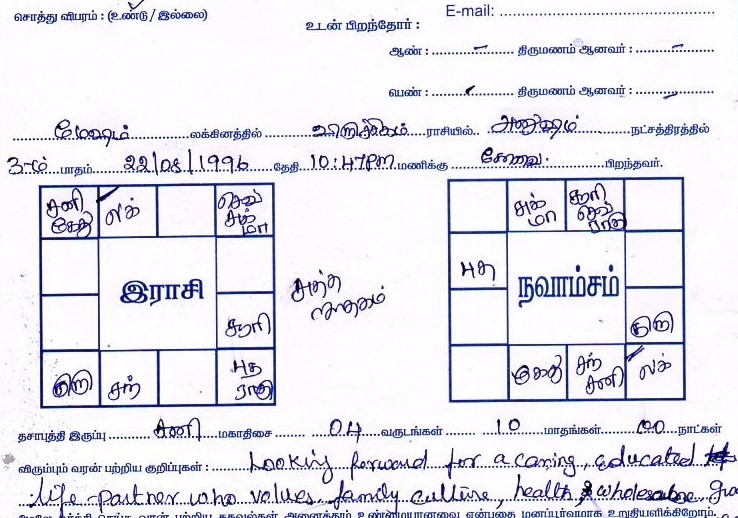 சொத்து விபரம் : (உண்டு / இல்லை)
E-mail:
உடன் பிறந்தோர் :
ஆண் : – திருமணம் ஆனவர் : –
பெண் : திருமணம் ஆனவர் : –
மேஷம் லக்கினத்தில் விருச்சிகம் ராசியில் அனுஷம் நட்சத்திரத்தில்
3-ம் பாதம் 22/08/1996 தேதி 10:47PM மணிக்கு கோவை பிறந்தவர்.
சனி கேது
லக்
செவ் சுக் மா
இராசி
சூரி
குரு
சந்
புத ராகு
சுத்த ஜாதகம்
சுக் மா
சூரி செவ் ராகு
புத
நவாம்சம்
குரு
கேது
சந் சனி
லக்
தசாபுத்தி இருப்பு சனி மகாதிசை 04 வருடங்கள் 10 மாதங்கள் 00 நாட்கள்
விரும்பும் வரன் பற்றிய குறிப்புகள் : Looking forward for a caring, educated
life-partner who values family culture, health & wholesome